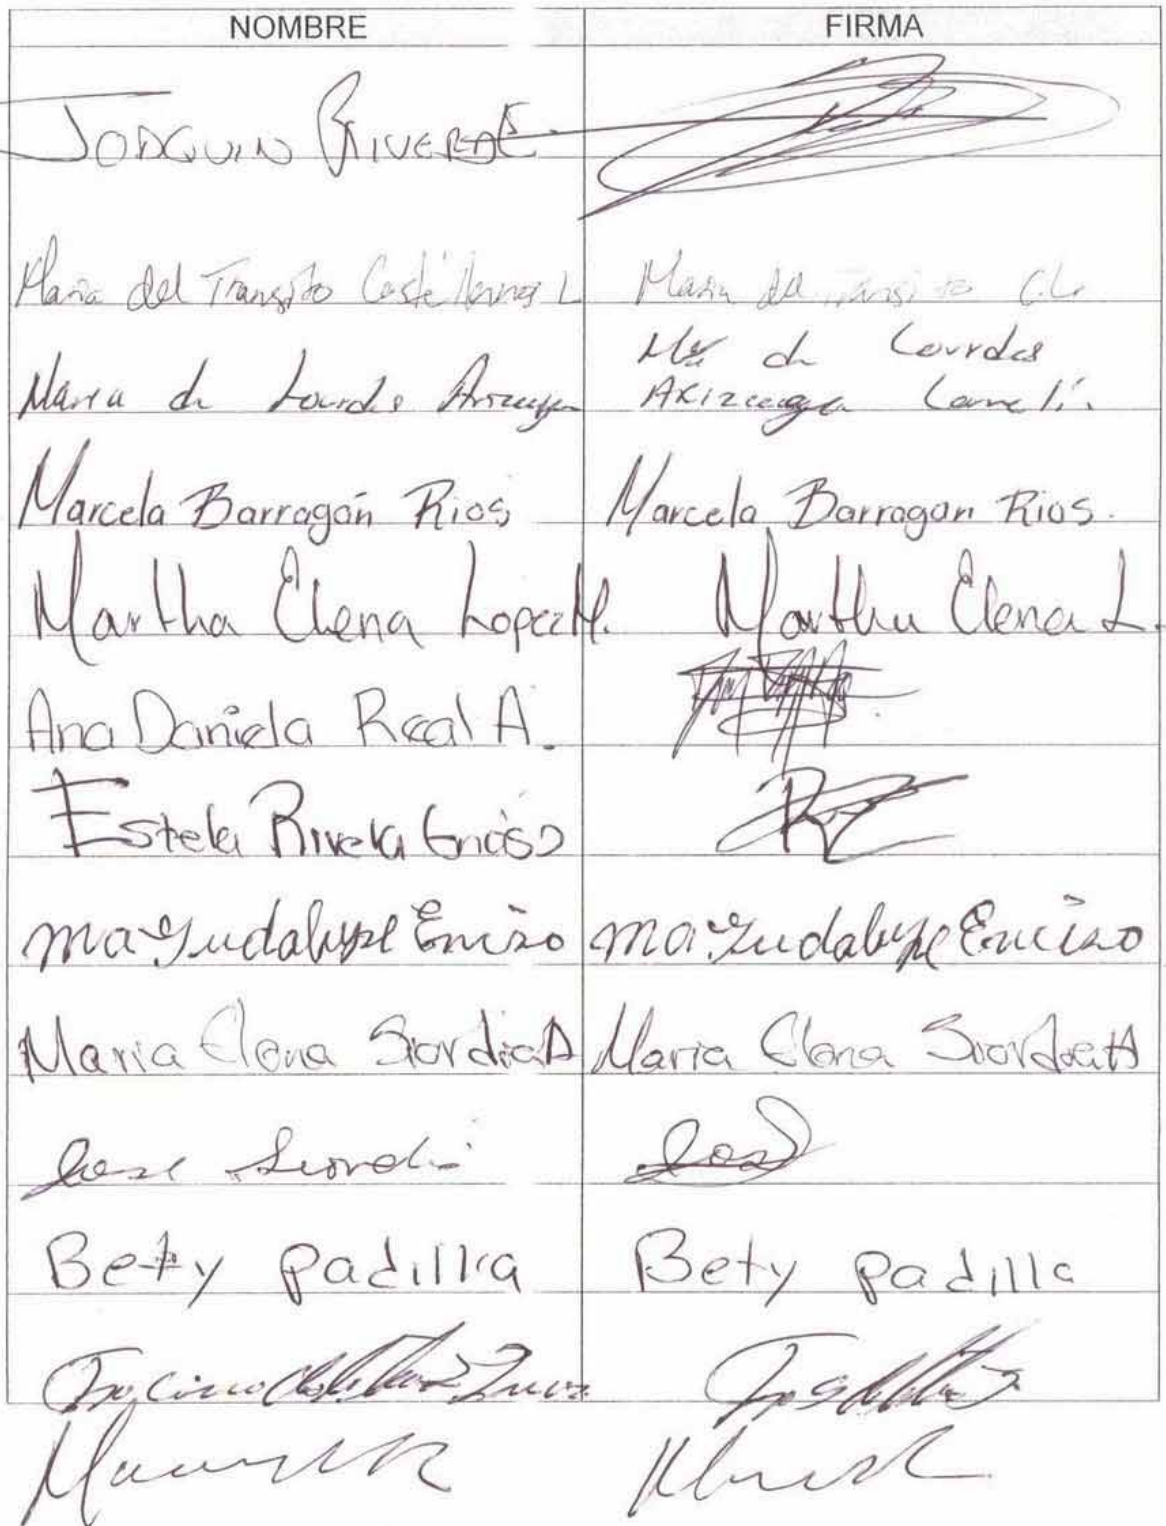 NOMBRE FIRMA
JOAQUIN RIVERA E.
Maria del Transito Castellanos L Maria del Transito C.L.
Maria de Lourdes Arizaga Ma de Lourdes
Arizaga
Marcela Barragán Rios Marcela Barragan Rios.
Martha Elena Lopez M. Martha Elena L.
Ana Daniela Real A.
Estela Rivera Enciso
Ma Guadalupe Enciso Ma. Guadalupe Enciso
Maria Elena Siordia A Maria Elena Siordia A
Jose Siordia Jose
Bety Padilla Bety Padilla